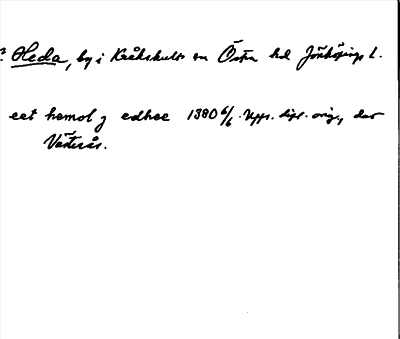 ? Heda, by i Kråkshults sn Östra hd Jönköpings l.
eet hemol j edhee 1380 6/6. Upps. dipl. orig., dat
Västerås.